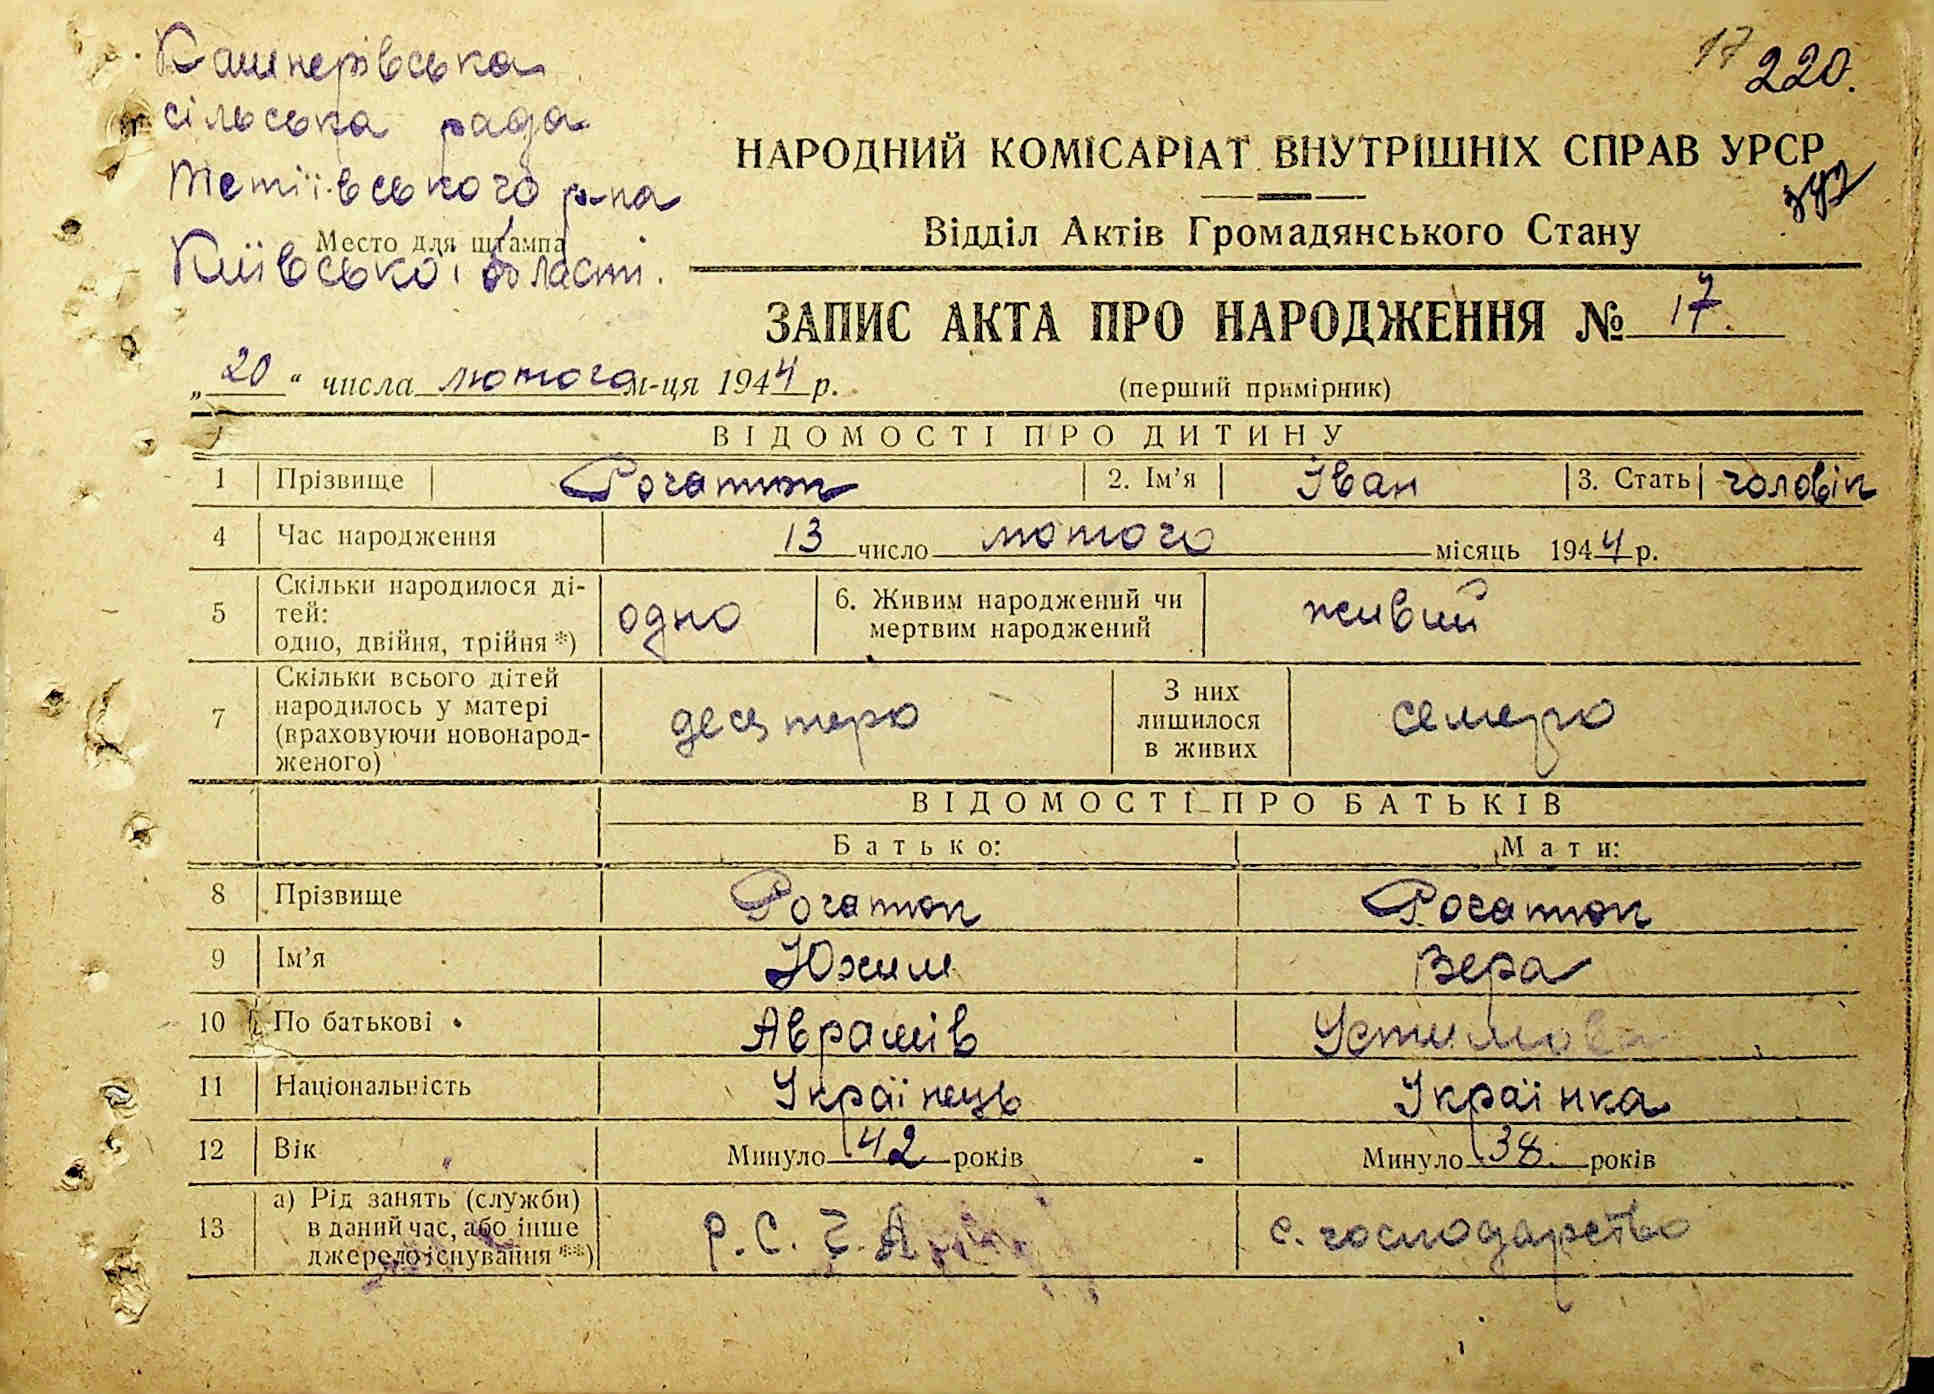 Кашперівська
17
220.
сільська рада
Тетіївського р-на
Київської області.
Место для штампа
НАРОДНИЙ КОМІСАРІАТ ВНУТРІШНІХ СПРАВ УРСР
Відділ Актів Громадянського Стану
ЗАПИС АКТА ПРО НАРОДЖЕННЯ № 17.
„20“ числа лютого м-ця 1944 р.
(перший примірник)
ВІДОМОСТІ ПРО ДИТИНУ
1 Прізвище Рогатюк 2. Ім’я Іван 3. Стать чоловік
4 Час народження 13 число лютого місяць 1944 р.
5 Скільки народилося ді-
тей:
одно, двійня, трійня *) одно
6. Живим народжений чи
мертвим народжений живий
7 Скільки всього дітей
народилось у матері
(враховуючи новонарод-
женого) десятеро
З них
лишилося
в живих семеро
ВІДОМОСТІ ПРО БАТЬКІВ
Батько: Мати:
8 Прізвище Рогатюк Рогатюк
9 Ім’я Юхим Вера
10 По батькові Аврамів Устимова
11 Національність Українець Українка
12 Вік Минуло 42 років Минуло 38. років
13 а) Рід занять (служби)
в даний час, або інше
джерело існування **)
Р. С. Ч. А с. господарство